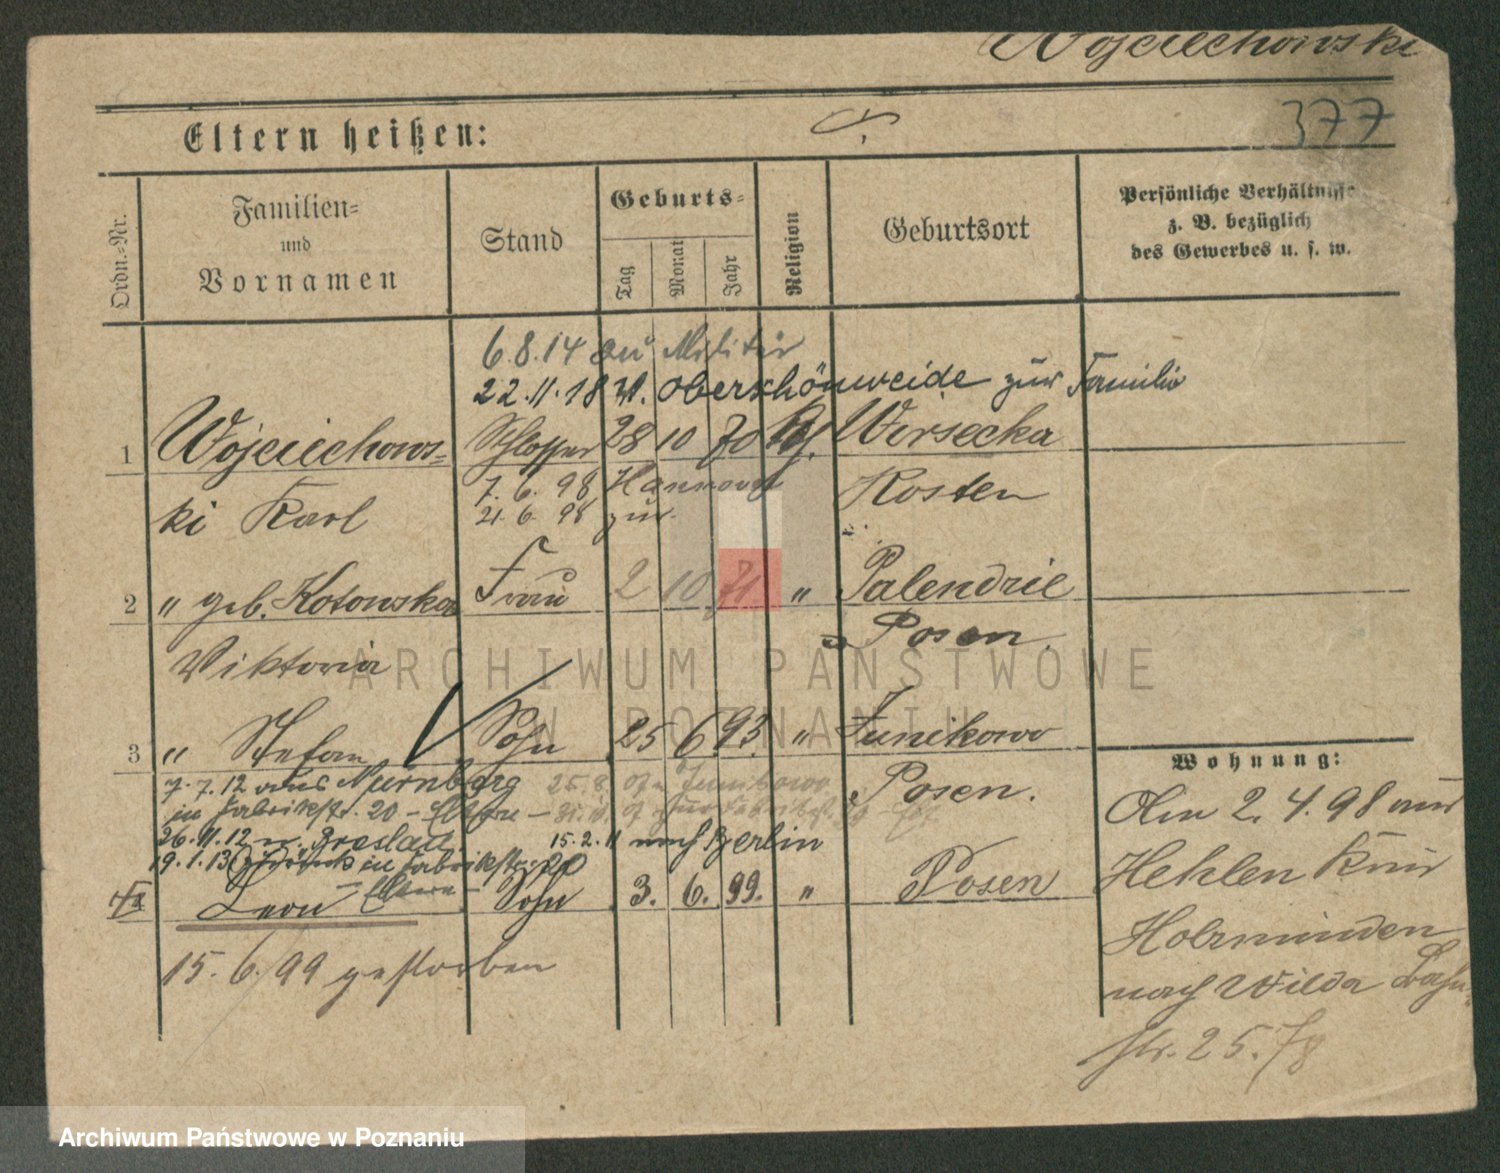 Wojciechowski
377
Eltern heißen:
Ordn.-Nr.
Familien-
und
Vornamen
Stand
Geburts-
Tag
Monat
Jahr
Religion
Geburtsort
Persönliche Verhältnisse
z. B. bezüglich
des Gewerbes u. s. w.
6.8.14 zu Militär
22.11.18 v. Oberschönweide zur Familie
1 Wojciechows- Schlosser 28 10 70 kath. Wirsecka
7.6.98 Hannover
ki Karl Kosten
21.6.98 zur.
2 " geb. Kotowska Frau 2 10 71 " Palendzie
Viktoria Posen
3 " Stefan Sohn 25 6 93. " Junikowo
Posen.
7.7.12 aus Nürnberg
in Fabrikstr. 20 - Eltern -
26.11.12 n. Breslau
15.2. nach Berlin
19.1.13 zurück in Fabrikstr. 20
- Eltern -
Leon Sohn 3. 6. 99. " Posen
15.6.99 gestorben
Wohnung:
Am 2.4.98 aus
Hehlen Kreis
Holzminden
nach Wilda Bahn-
str. 25.
ARCHIWUM PAŃSTWOWE
W POZNANIU
Archiwum Państwowe w Poznaniu